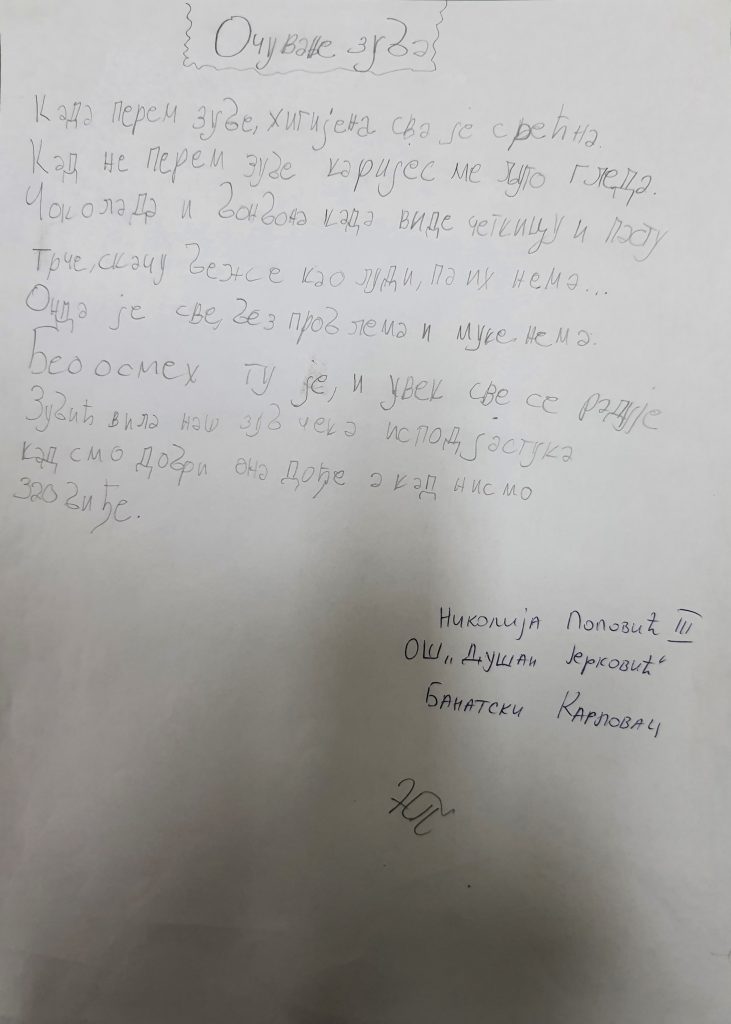 Очување зуба
Када перем зубе, хигијена сва је срећна.
Кад не перем зубе каријес ме љуто гледа.
Чоколада и бонбона када виде четкицу и пасту
трче, скачу беже као луди, па их нема...
Онда је све, без проблема и муке нема.
Бео осмех ту је, и увек све се радује
Зубић вила наш зуб чека испод јастука
кад смо добри она дође а кад нисмо
заобиђе.
Николија Поповић III
ОШ „Душан Јерковић“
Банатски Карловац